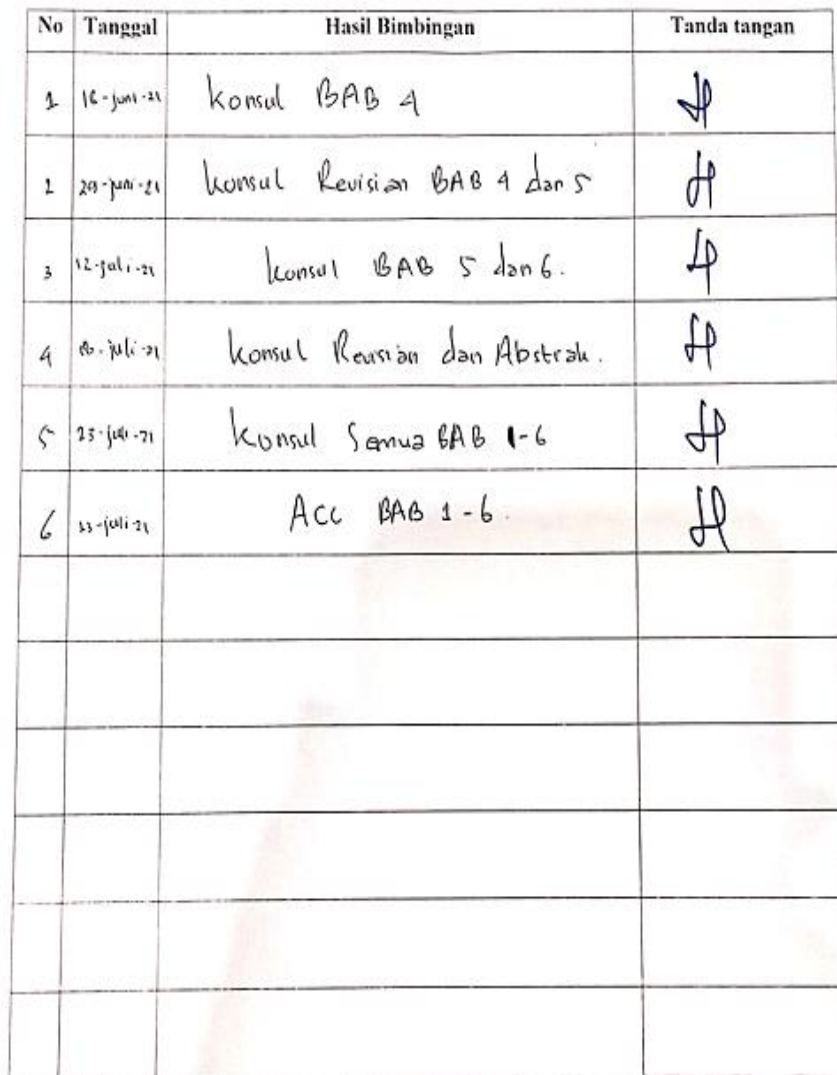 No Tanggal Hasil Bimbingan Tanda tangan
1 16-juni-21 Konsul BAB 4
2 -juni-21 Konsul Revisian BAB 4 dan 5
3 12-juli-21 Konsul BAB 5 dan 6.
4 -juli-21 Konsul Revisian dan Abstrak.
5 23-juli-21 Konsul Semua BAB 1-6
6 -juli-21 Acc BAB 1-6.